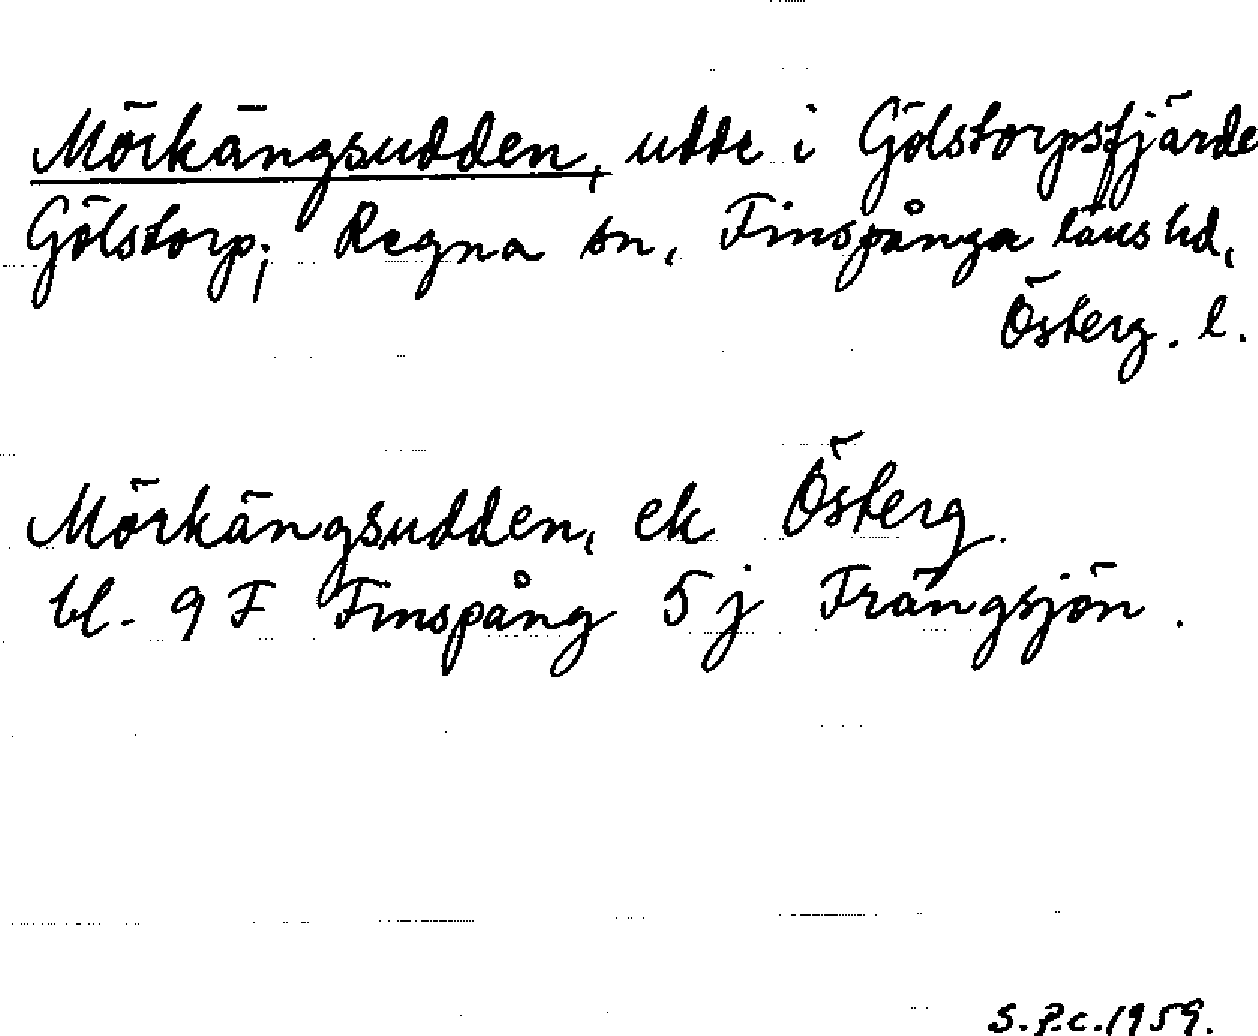 Mörkängsudden, udde i Gölstorpsfjärde
Gölstorp; Regna sn, Finspånga läns hd,
Österg. l.
Mörkängsudden, ek Österg.
bl. 9 F Finspång 5 j Frängsjön.
S.P.c. 1959.